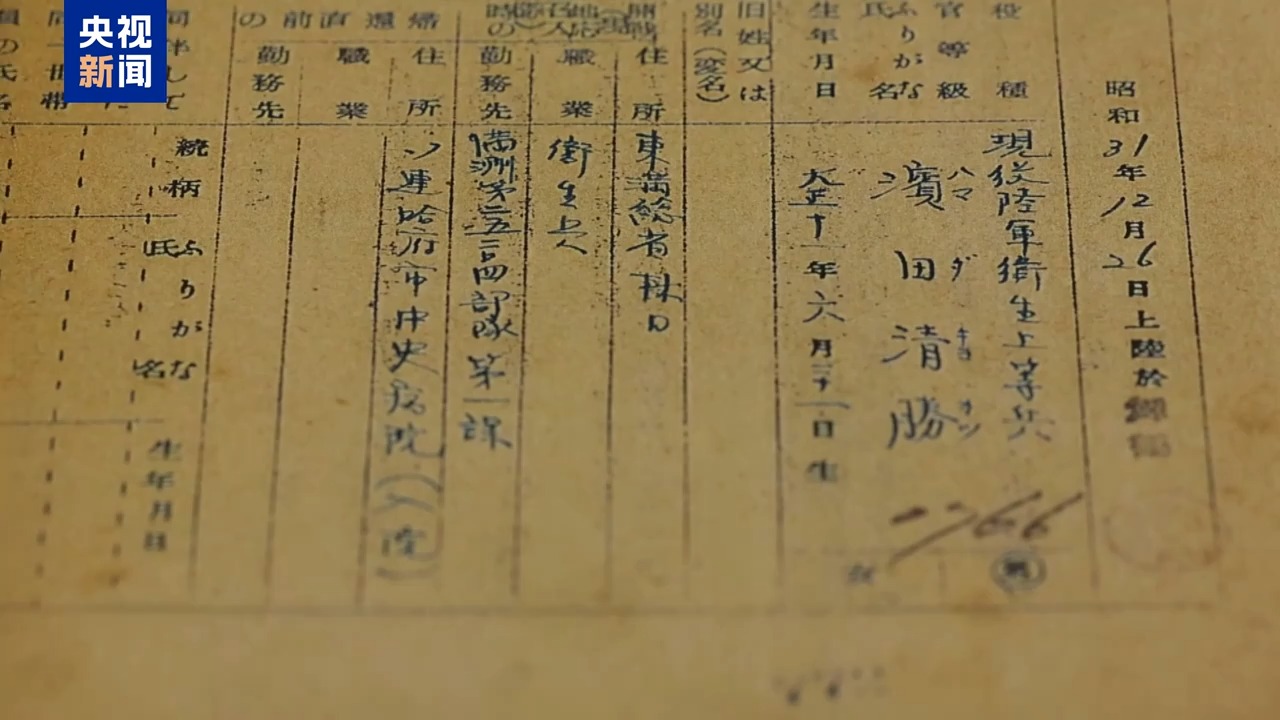 央视
新闻
昭和31年12月26日上陸於
役種
現役陸軍衛生上等兵
官等級
ふりがな
氏名
ハマ ダ キヨ カツ
濱田清勝
生年月日
大正十一年六月三十一日生
旧姓又は
別名(変名)
住所
東満総省林口
職業
衛生上
勤務先
満洲第二五二四部隊第一課
帰還直前の
住所
ソ連哈府市中央病院(入院)
職業
勤務先
同伴して
続柄
ふりがな
氏名
生年月日